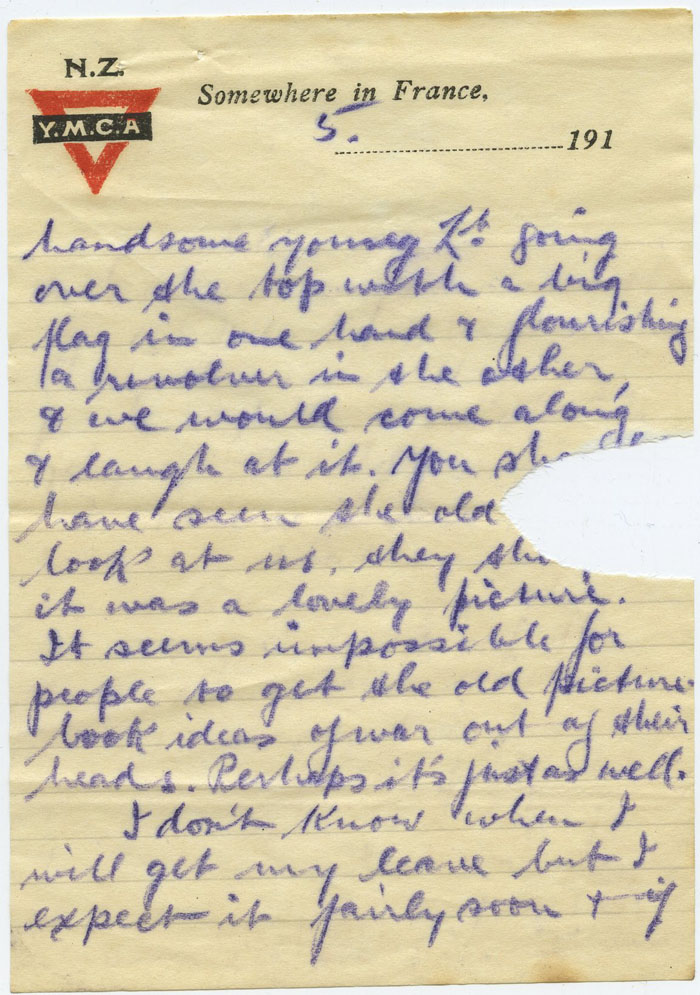 N.Z.
Y.M.C.A
Somewhere in France,
5.
191
handsome young Lt going
over the top with a big
flag in one hand & flourishing
a revolver in the other,
& we would come along
& laugh at it. You
have seen the old
look at us, they
it was a lovely picture.
It seems impossible for
people to get the old picture-
book ideas of war out of their
heads. Perhaps it's just as well.
I don't know when I
will get my leave but I
expect it fairly soon + if